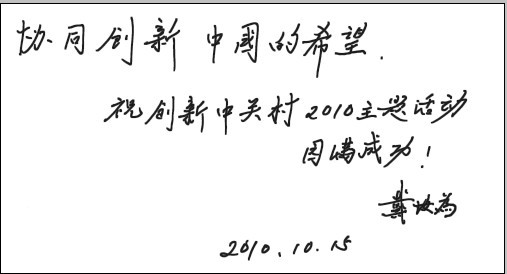 协同创新 中國的希望.
祝创新中关村2010主题活动
圆满成功！
戴汝為
2010.10.15